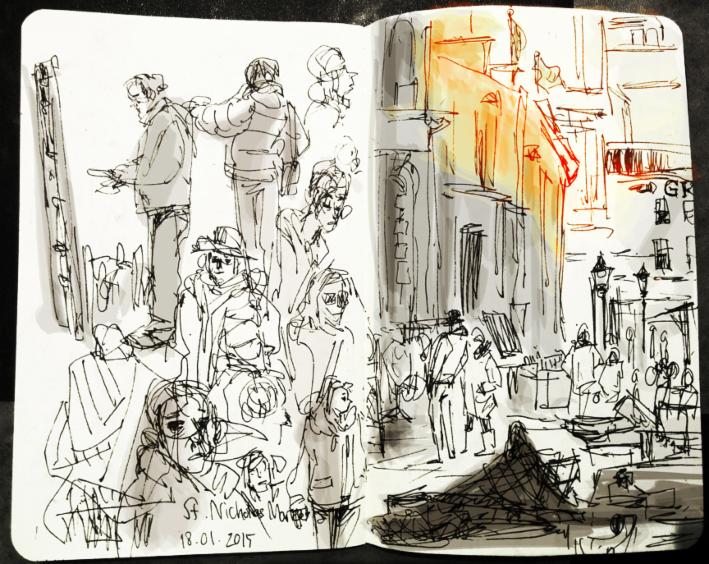 St. Nicholas Market
18.01.2015
GR